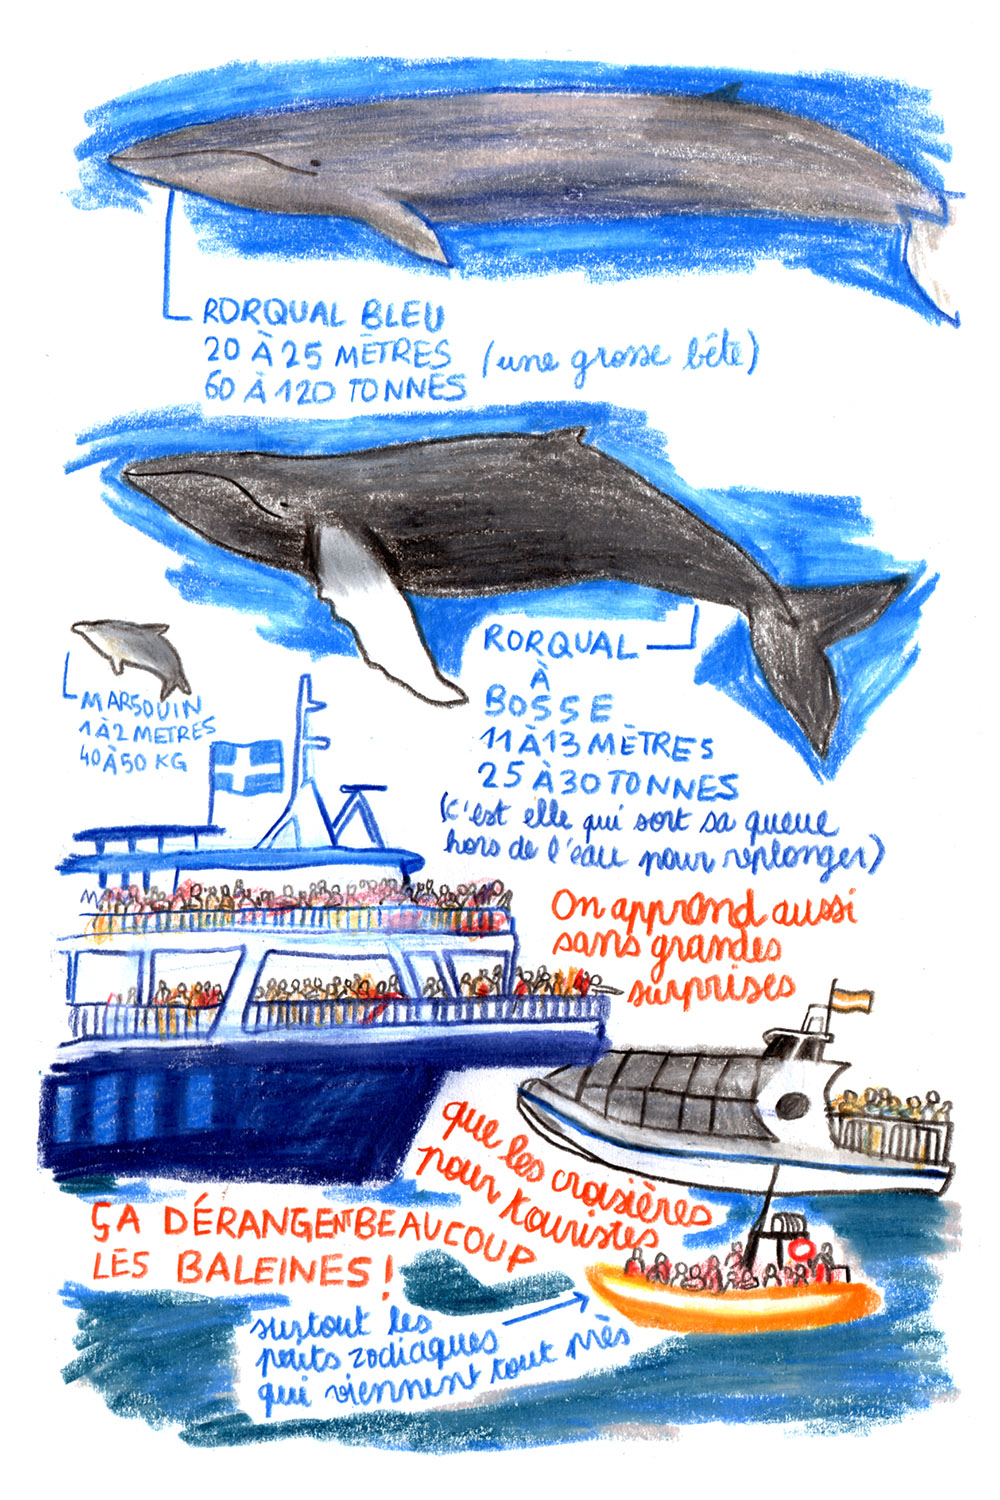 RORQUAL BLEU
20 À 25 MÈTRES
60 À 120 TONNES
(une grosse bête)
MARSOUIN
1 À 2 METRES
40 À 50 KG
RORQUAL
À
BOSSE
11 À 13 MÈTRES
25 À 30 TONNES
(c'est elle qui sort sa queue
hors de l'eau pour replonger)
On apprend aussi
sans grandes
surprises
que les croisières
pour touristes
ÇA DÉRANGENT BEAUCOUP
LES BALEINES !
surtout les
petits zodiaques
qui viennent tout près